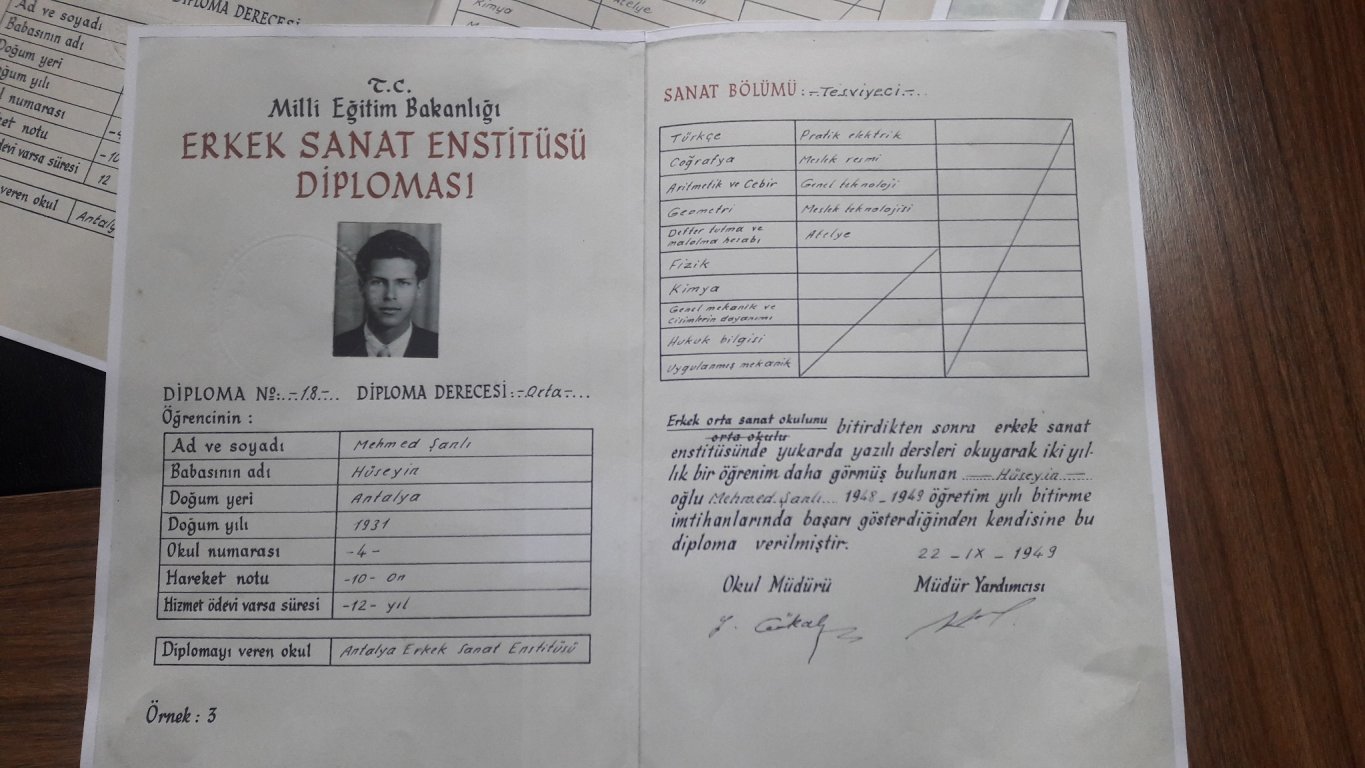 DİPLOMA DERECESİ
Ad ve soyadı
Babasının adı
Doğum yeri
ğum yılı
l numarası
ket notu
devi varsa süresi
-10
12
veren okul
Antaly
Kimya
Atelye
T.C.
Milli Eğitim Bakanlığı
ERKEK SANAT ENSTİTÜSÜ
DİPLOMASI
DİPLOMA Nº:.-18-... DİPLOMA DERECESİ:-Orta-...
Öğrencinin :
Ad ve soyadı Mehmed Şanlı
Babasının adı Hüseyin
Doğum yeri Antalya
Doğum yılı 1931
Okul numarası -4-
Hareket notu -10- on
Hizmet ödevi varsa süresi -12- yıl
Diplomayı veren okul Antalya Erkek Sanat Enstitüsü
Örnek : 3
SANAT BÖLÜMÜ :.-Tesviyeci-..
Türkçe Pratik elektrik
Coğrafya Meslek resmi
Aritmetik ve Cebir Genel teknoloji
Geometri Meslek teknolojisi
Defter tutma ve
maloma hesabı Atelye
Fizik
Kimya
Genel mekanik ve
cisimlerin dayanımı
Hukuk bilgisi
Uygulanmış mekanik
Erkek orta sanat okulunu
orta okulu
bitirdikten sonra erkek sanat
enstitüsünde yukarda yazılı dersleri okuyarak iki yıl-
lık bir öğrenim daha görmüş bulunan Hüseyin
oğlu Mehmed Şanlı 1948-1949 öğretim yılı bitirme
imtihanlarında başarı gösterdiğinden kendisine bu
diploma verilmiştir.
22-IX-1949
Okul Müdürü Müdür Yardımcısı